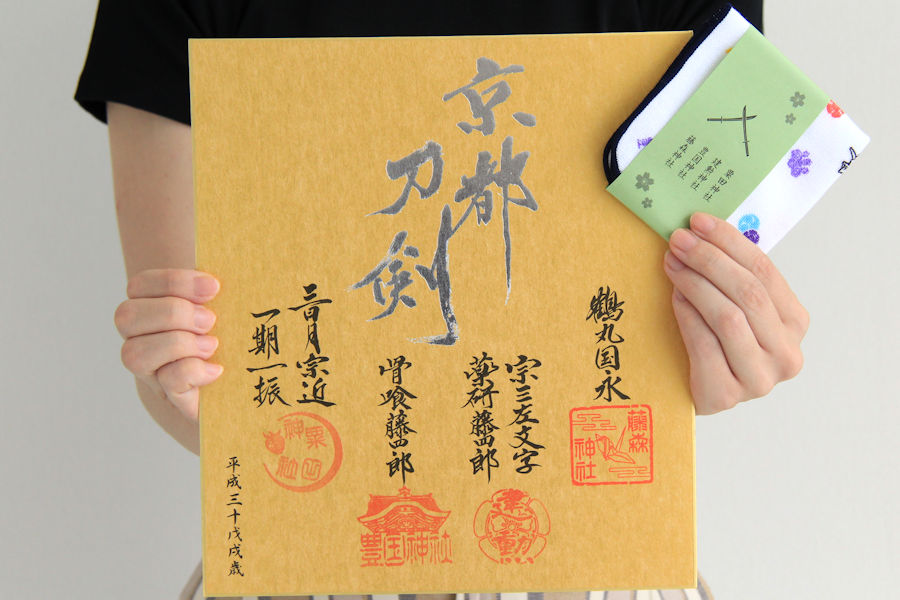 京都
刀剣
鶴丸国永
藤森
神社
宗三左文字
薬研藤四郎
建勲
骨喰藤四郎
豊国神社
三日月宗近
一期一振
粟田
神社
平成三十戊戌歳
粟田神社
建勲神社
豊国神社
藤森神社